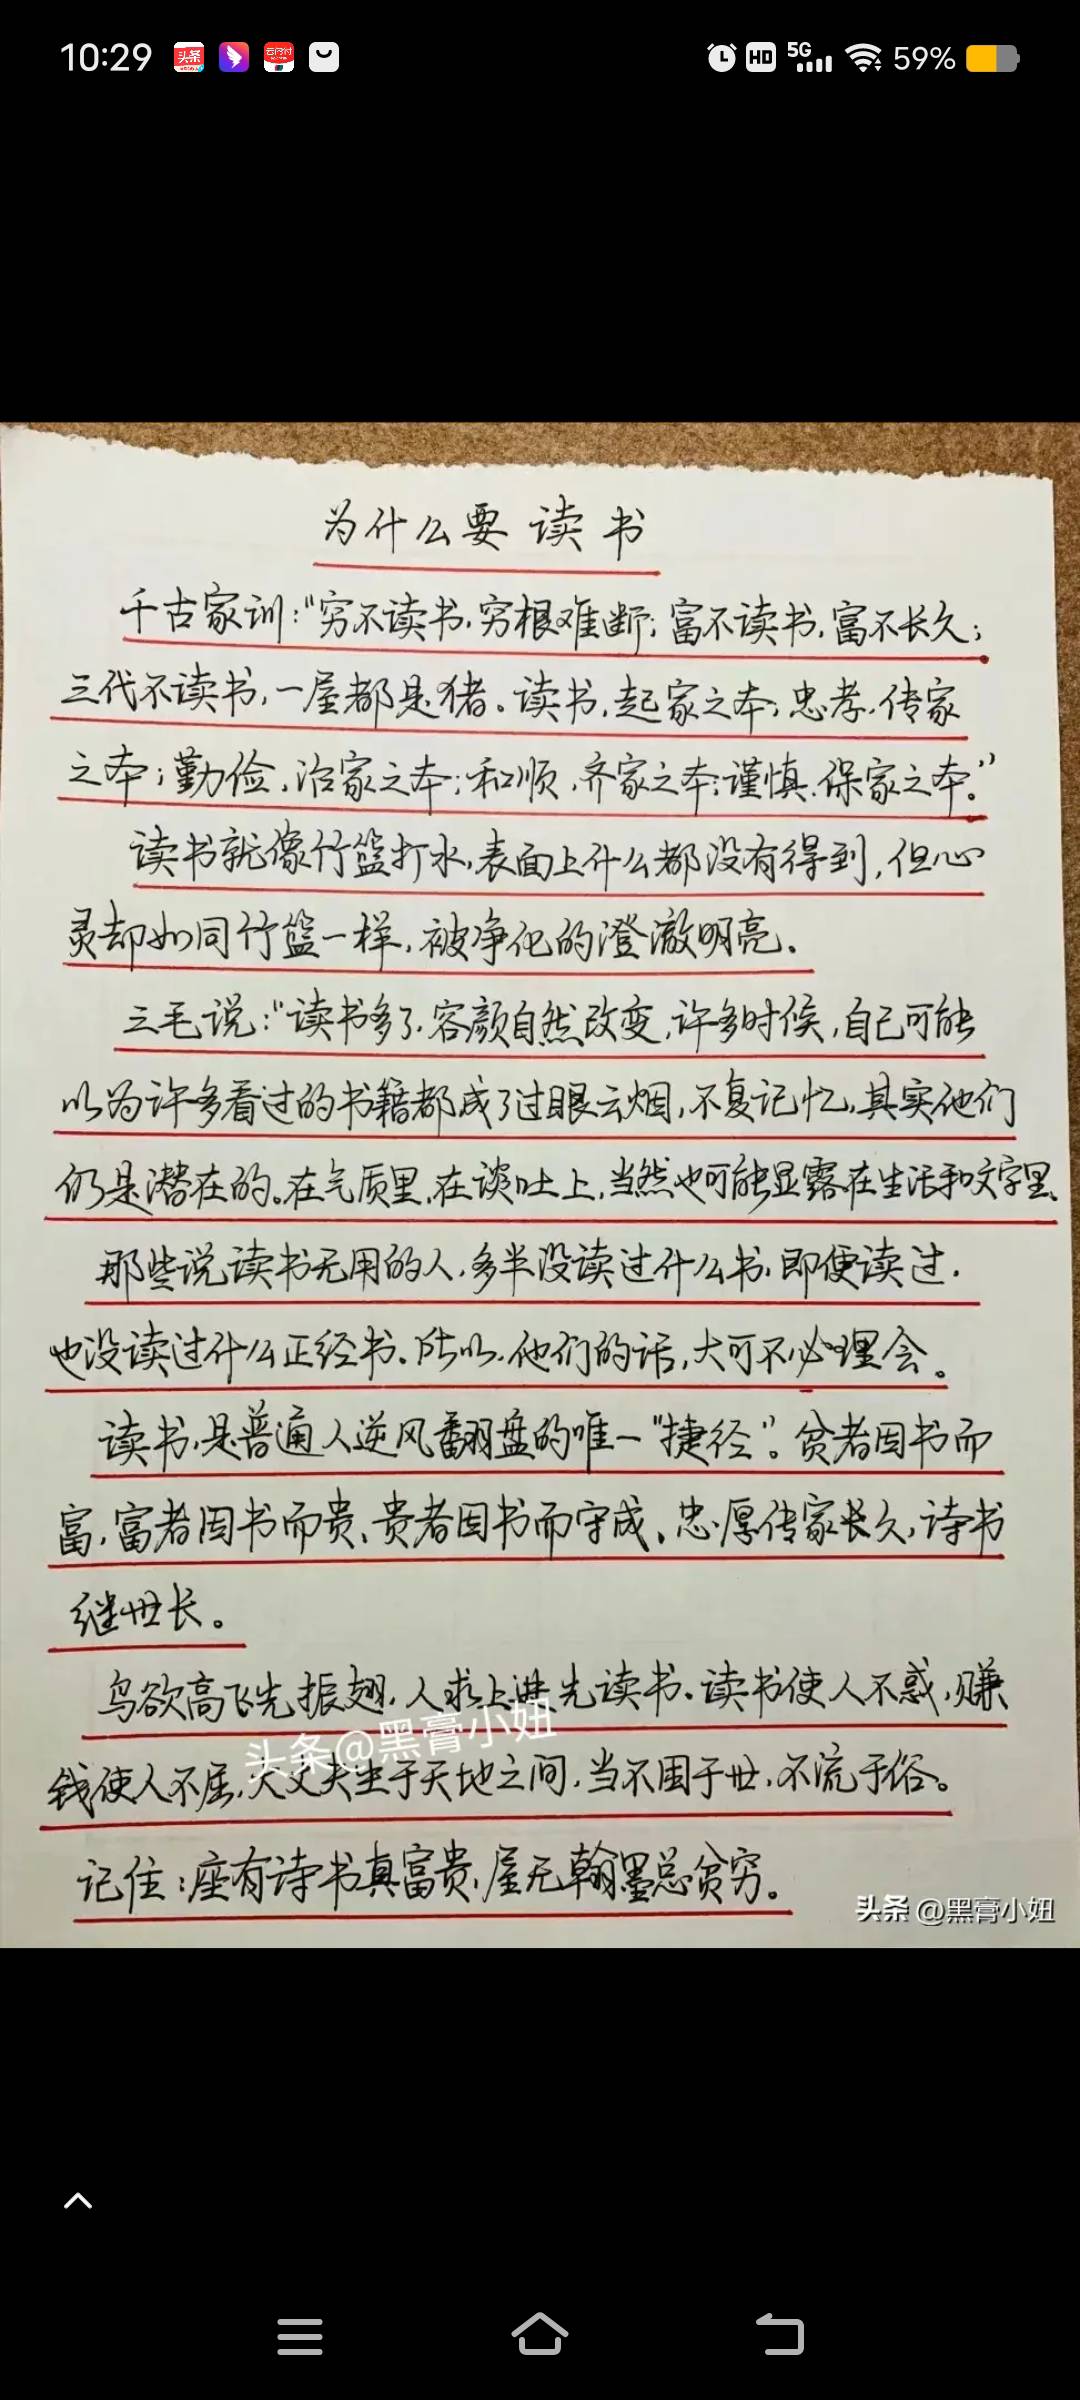 10:29
头条
云闪付
HD
5G
59%
为什么要读书
千古家训:“穷不读书,穷根难断;富不读书,富不长久;
三代不读书,一屋都是猪。读书,起家之本;忠孝,传家
之本;勤俭,治家之本;和顺,齐家之本;谨慎,保家之本。”
读书就像竹篮打水,表面上什么都没有得到,但心
灵却如同竹篮一样,被净化的澄澈明亮。
三毛说:“读书多了,容颜自然改变,许多时候,自己可能
以为许多看过的书籍都成了过眼云烟,不复记忆,其实他们
仍是潜在的。在气质里,在谈吐上,当然也可能显露在生活和文字里、
那些说读书无用的人,多半没读过什么书,即便读过,
也没读过什么正经书、所以,他们的话,大可不必理会。
读书,是普通人逆风翻盘的唯一“捷径”。贫者因书而
富,富者因书而贵、贵者因书而守成、忠厚传家长久,诗书
继世长。
鸟欲高飞先振翅,人求上进先读书、读书使人不惑,赚
钱使人不屈,大丈夫生于天地之间,当不困于世,不流于俗。
头条@黑膏小妞
记住:座有诗书真富贵,屋无翰墨总贫穷。
头条 @黑膏小妞